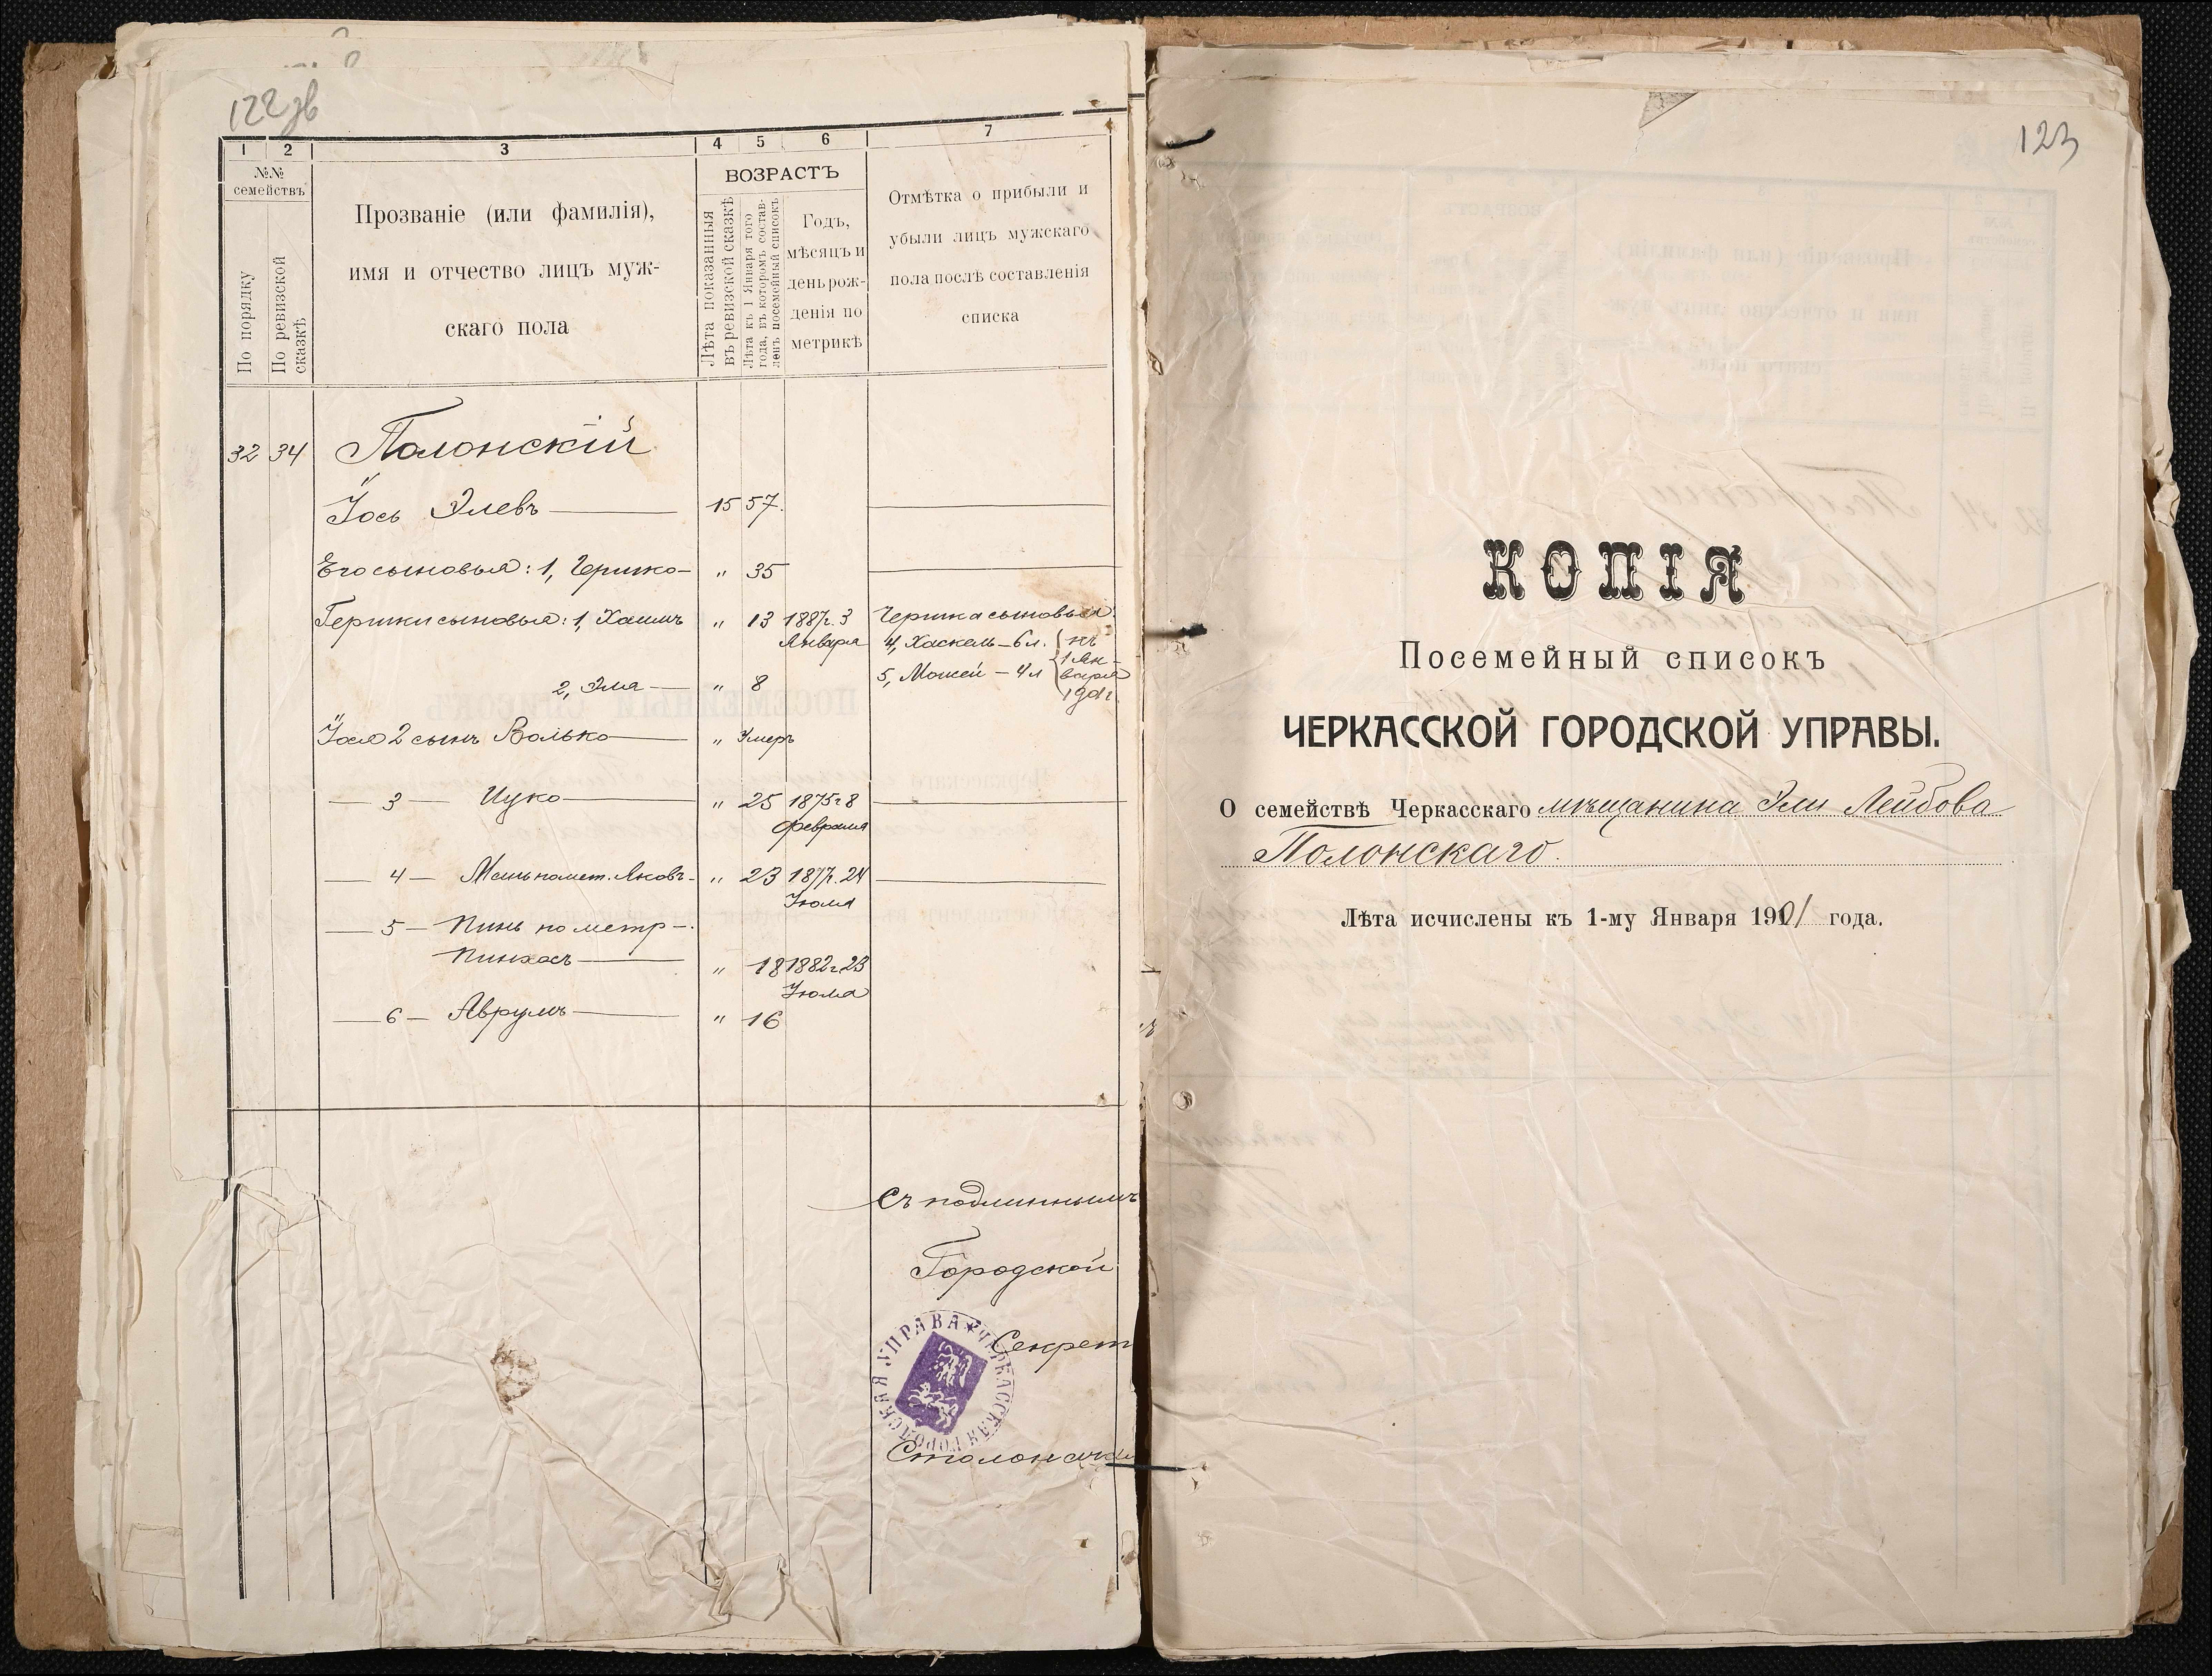 122 зв
1 2 3 4 5 6 7
№№ семействъ
По порядку
По ревизской сказкѣ
Прозваніе (или фамилія),
имя и отчество лицъ муж-
скаго пола
ВОЗРАСТЪ
Лѣта показанныя
въ ревизской сказкѣ
Лѣта къ 1 Января того
года, въ которомъ состав-
ленъ посемейный списокъ
Годъ,
мѣсяцъ и
день рож-
денія по
метрикѣ
Отмѣтка о прибыли и
убыли лицъ мужскаго
пола послѣ составленія
списка
32 34 Полонскій
Іось Элевъ 15 57.
Его сыновья: 1, Гершко „ 35
Гершки сыновья: 1, Хаимъ „ 13 1887г. 3
Января
Гершка сыновья:
4, Хаскель – 6 л.
5, Мошей – 4 л
къ
1 Ян-
варя
1901г.
2, Эля „ 8
Іося 2 сынъ Волько „ Умеръ
3 Ицко „ 25 1875г 8
февраля
4 по мет. Яковъ „ 23 1877г. 24
Іюля
5 Пинь по метр.
Пинхасъ „ 18 1882г. 23
Іюля
6 Аврумъ „ 16
Съ подлиннымъ
Городской
Секрет
Столонач
ЧЕРКАССКАЯ ГОРОДСКАЯ УПРАВА
123
КОПІЯ
Посемейный списокъ
ЧЕРКАССКОЙ ГОРОДСКОЙ УПРАВЫ.
О семействѣ Черкасскаго мѣщанина Эли Лейбова
Полонскаго.
Лѣта исчислены къ 1-му Января 1901 года.